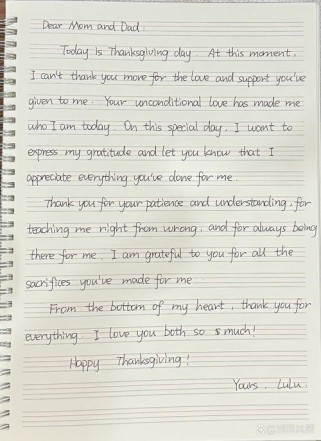 Dear Mom and Dad.
Today is Thanksgiving day. At this moment,
I can't thank you more for the love and support you've
given to me. Your unconditional love has made me
who I am today. On this special day, I want to
express my gratitude and let you know that I
appreciate everything you've done for me.
Thank you for your patience and understanding, for
teaching me right from wrong, and for always being
there for me. I am grateful to you for all the
sacrifices you've made for me.
From the bottom of my heart, thank you for
everything. I love you both so much!
Happy Thanksgiving!
Yours, Lulu.